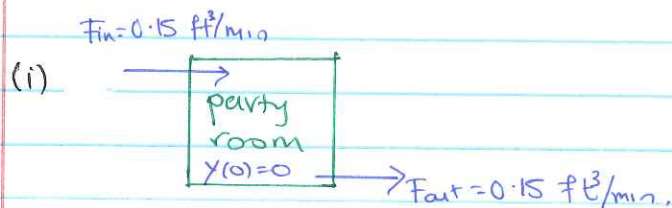 Fin=0.15 ft³/min
(i)
party
room
y(0)=0
Fout=0.15 ft³/min.